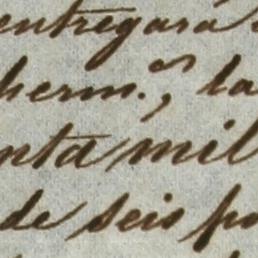 entregará
herm.^os, la
nta mil
de seis po